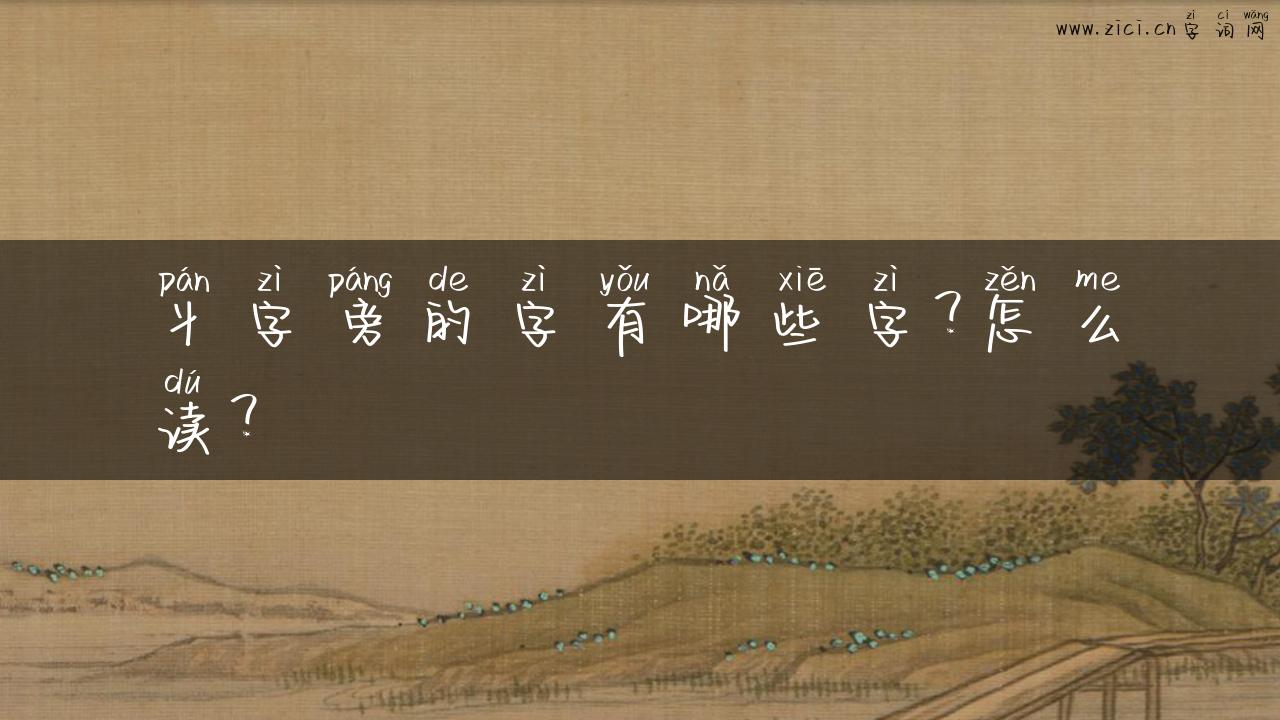 zì cí wǎng
www.zici.cn字词网
pán zì páng de zì yǒu nǎ xiē zì zěn me
丬字旁的字有哪些字?怎么
dú
读?